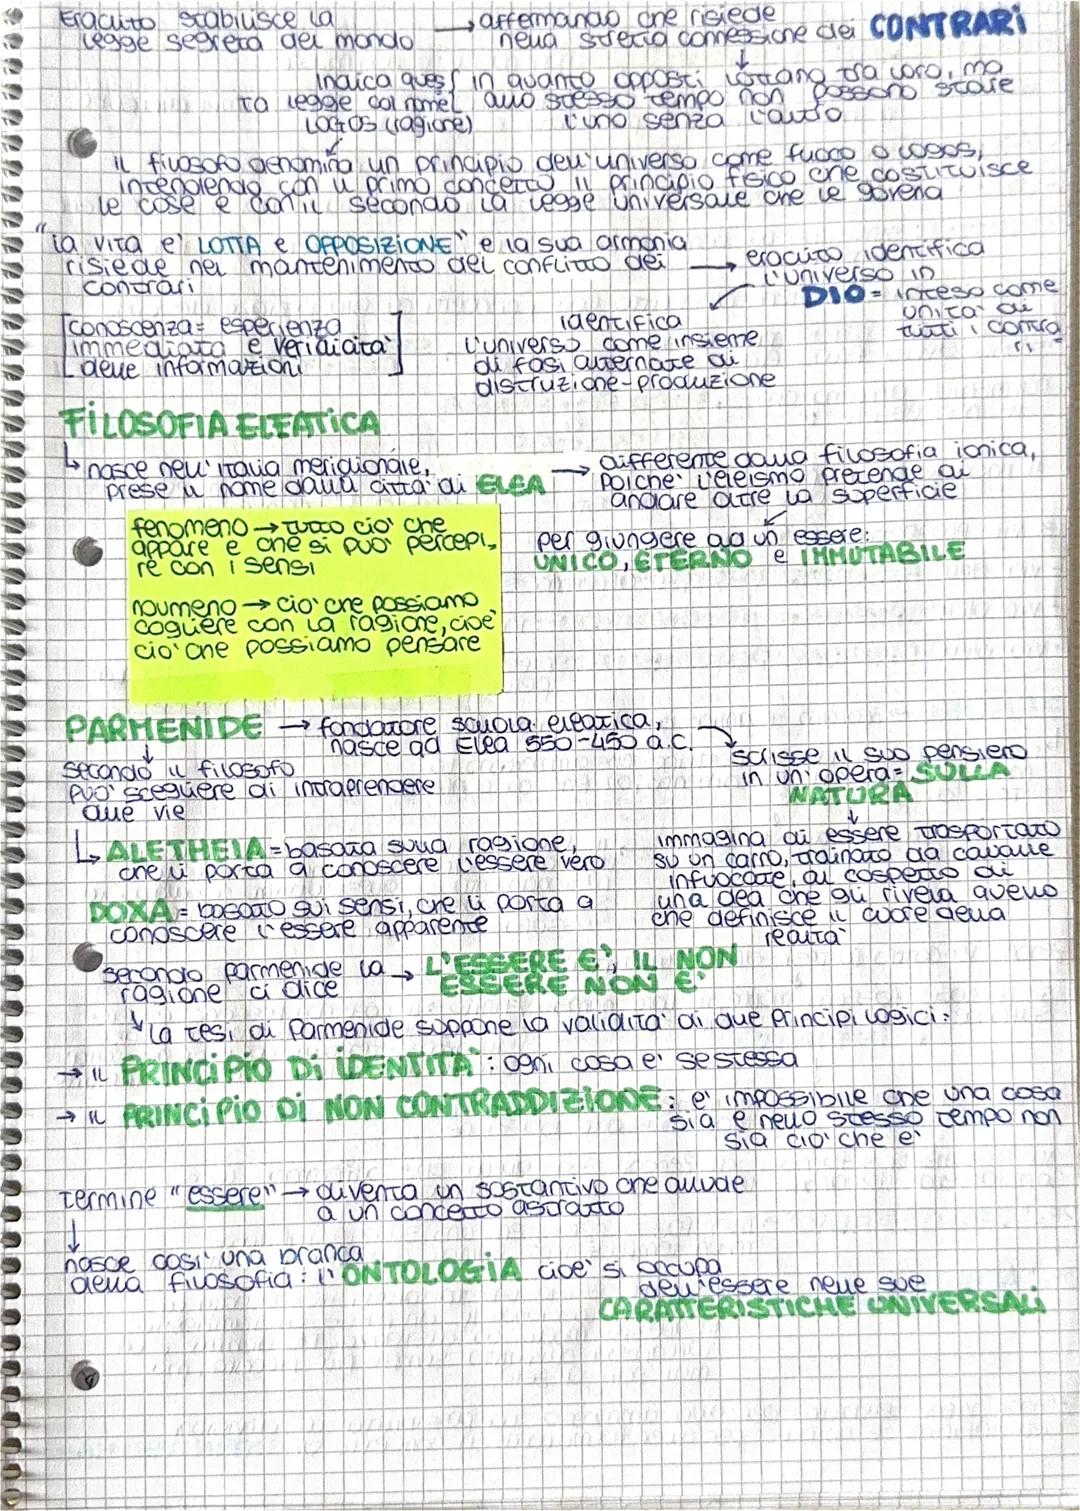 Eraclito stabilisce la
legge segreta del mondo
→ affermando che risiede
nella stretta connessione dei CONTRARI
↓
in quanto opposti lottano tra loro, ma
allo stesso tempo non possono stare
l'uno senza l'altro
Indica ques
ta legge col nome
LOGOS (ragione)
il filosofo denomina un principio dell'universo come fuoco o logos,
intendendo con il primo concetto il principio fisico che costituisce
le cose e con il secondo la legge universale che le governa
"la vita e' LOTTA e OPPOSIZIONE" e la sua armonia
risiede nel mantenimento del conflitto dei
contrari
→ eraclito identifica
l'universo in
DIO = inteso come
unita' di
tutti i contra
ri
identifica
l'universo come insieme
di fasi alternate di
distruzione-produzione
[conoscenza = esperienza
immediata e veridicita'
delle informazioni]
FILOSOFIA ELEATICA
↳ nasce nell'Italia meridionale,
prese il nome dalla citta' di ELEA
→ differente dalla filosofia ionica,
poiche' l'eleismo pretende di
andare oltre la superficie
per giungere ad un essere:
UNICO, ETERNO e IMMUTABILE
fenomeno → tutto cio' che
appare e che si puo' percepi-
re con i sensi
noumeno → cio' che possiamo
cogliere con la ragione, cioe'
cio' che possiamo pensare
PARMENIDE → fondatore scuola eleatica,
nasce ad Elea 550-450 a.C.
scrisse il suo pensiero
in un'opera = SULLA
NATURA
↓
immagina di essere trasportato
su un carro, trainato da cavalle
infuocate, al cospetto di
una dea che gli rivela quello
che definisce il cuore della
realta'
↓
secondo il filosofo
puo' scegliere di intraprendere
due vie
↳ ALETHEIA = basata sulla ragione,
che li porta a conoscere l'essere vero
DOXA = basato sui sensi, che li porta a
conoscere l'essere apparente
secondo parmenide la
ragione ci dice
→ L'ESSERE E', IL NON
ESSERE NON E'
↓ la tesi di Parmenide suppone la validita' di due principi logici:
→ il PRINCIPIO DI IDENTITA': ogni cosa e' se stessa
→ il PRINCIPIO DI NON CONTRADDIZIONE: e' impossibile che una cosa
sia e nello stesso tempo non
sia cio' che e'
termine "essere" → diventa un sostantivo che allude
a un concetto astratto
↓
nasce cosi' una branca
della filosofia: l'ONTOLOGIA cioe' si occupa
dell'essere nelle sue
CARATTERISTICHE UNIVERSALI